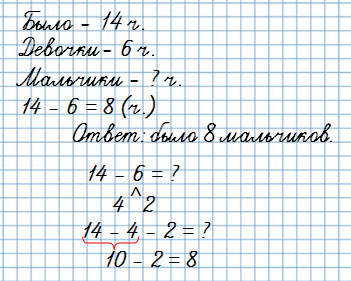 Было – 14 ч.
Девочки – 6 ч.
Мальчики – ? ч.
14 – 6 = 8 (ч.)
Ответ: было 8 мальчиков.
14 – 6 = ?
4 ^ 2
14 – 4 – 2 = ?
10 – 2 = 8